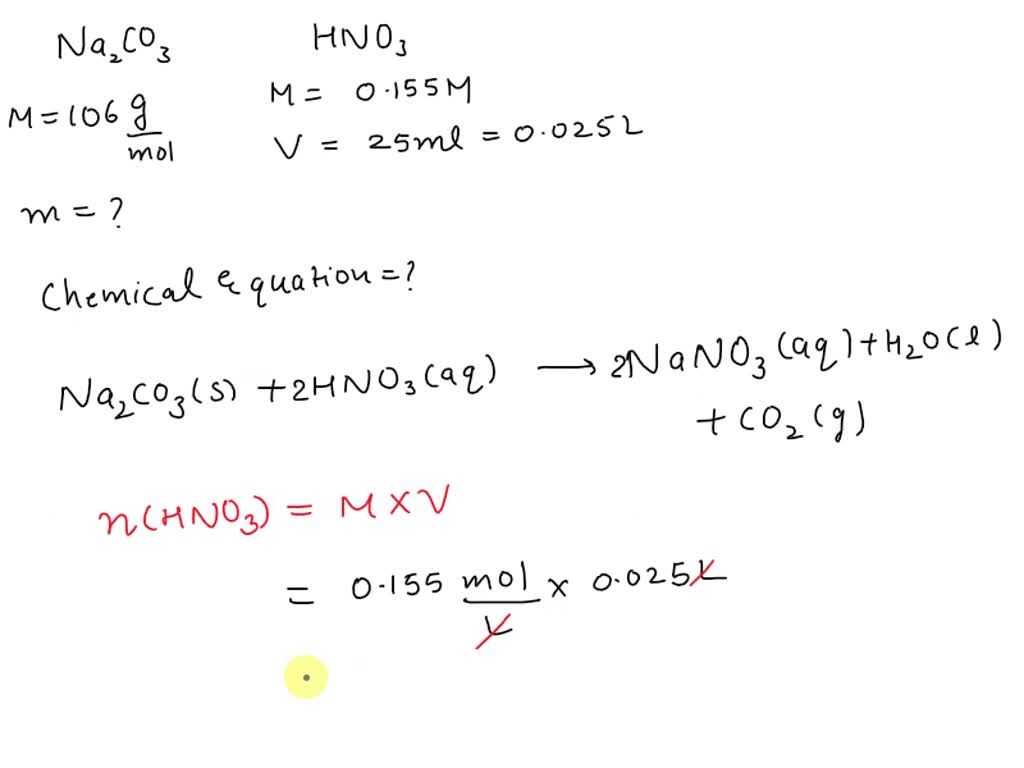 Na₂CO₃ HNO₃
M = 106 g/mol M = 0.155M
V = 25ml = 0.025L
m = ?
Chemical Equation = ?
Na₂CO₃(s) + 2HNO₃(aq) → 2NaNO₃(aq) + H₂O(l)
+ CO₂(g)
n(HNO₃) = M X V
= 0.155 mol/L x 0.025L